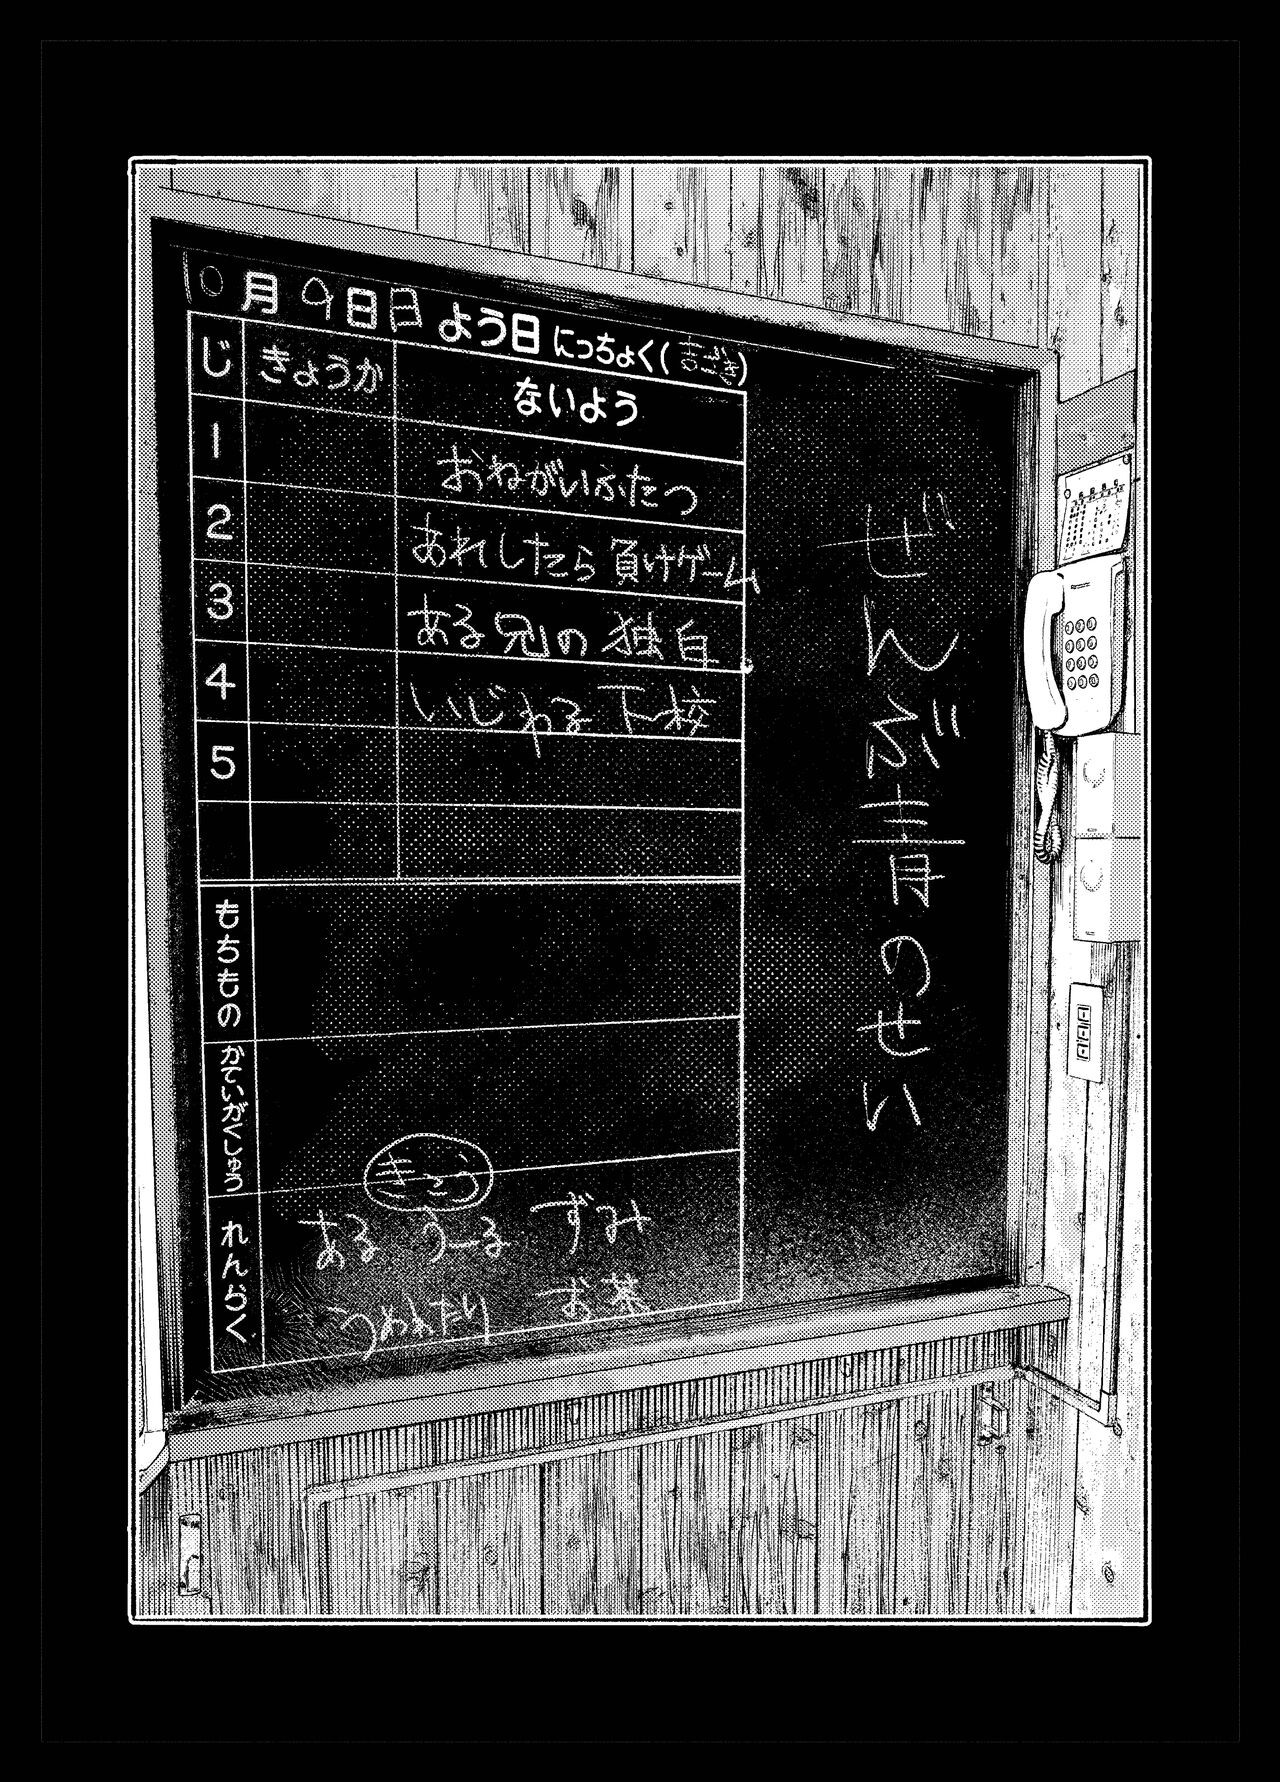 10月9日日よう日 にっちょく( )
じ きょうか ないよう
1 おねがいふたつ
2 あれしたら負けゲーム
3 ある兄の独白
4 いじわる下校
5
もちもの
かていがくしゅう
れんらく
きょう
ある うーる ずみ
うめわたり お茶
ぜんぶ青のせい